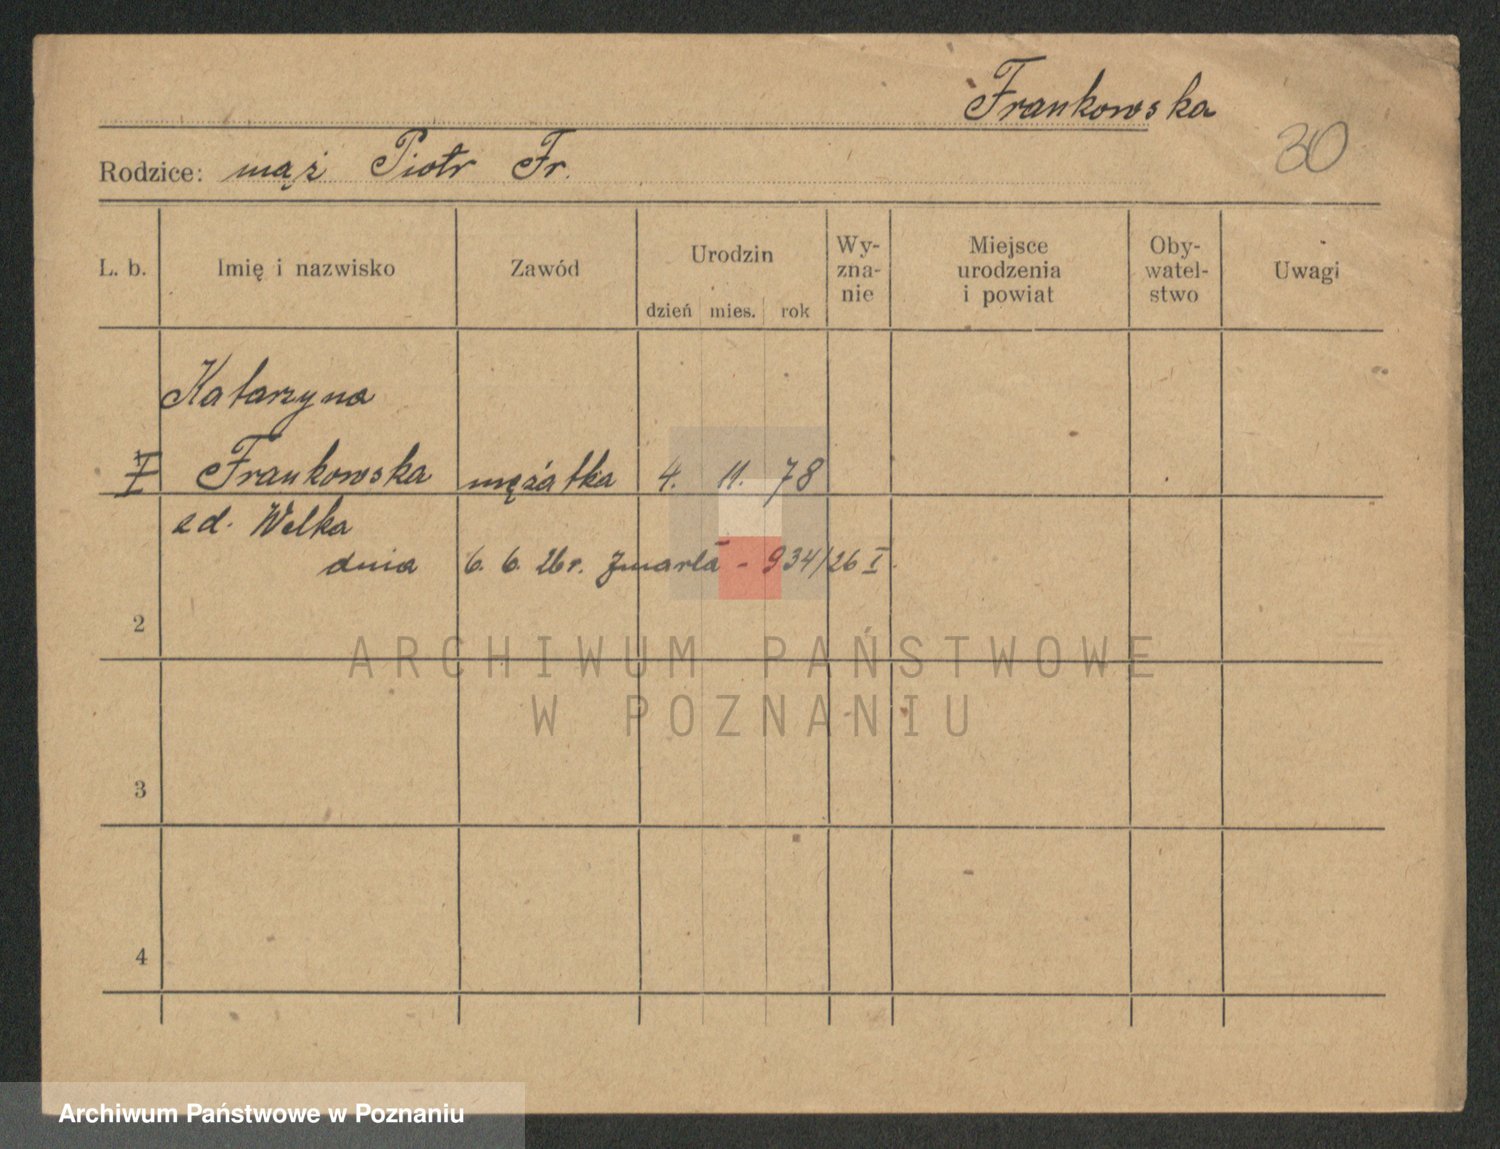 Frankowska
30
Rodzice: mąż Piotr Fr.
L. b. Imię i nazwisko Zawód Urodzin dzień mies. rok Wy-zna-nie Miejsce urodzenia i powiat Oby-watel-stwo Uwagi
Katarzyna
Frankowska mężatka 4. 11. 78
zd. Welka
dnia 6. 6. 26 r. zmarła - 934/26 I.
2
ARCHIWUM PAŃSTWOWE
W POZNANIU
3
4
Archiwum Państwowe w Poznaniu